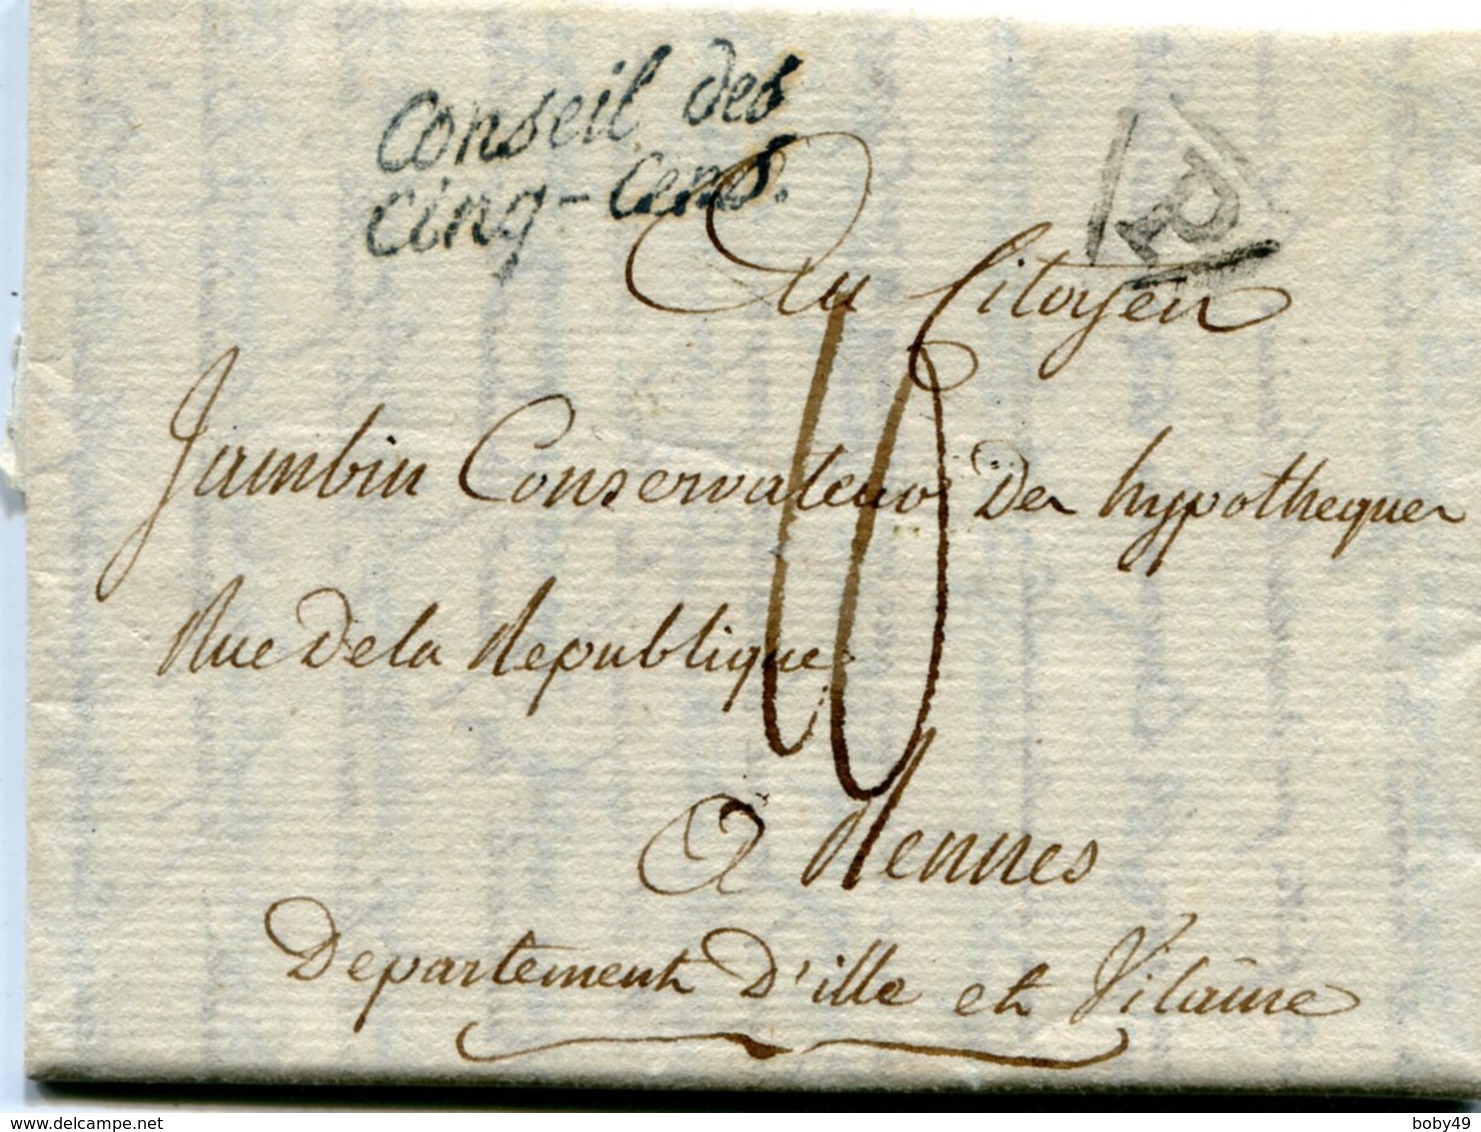 Conseil des
Cinq-Cens.
P
Au Citoyen
Jambin Conservateur Des hypotheques
Rue De la Republique
10
a Rennes
Departement D'ille et Vilaine
delcampe.net
boby49